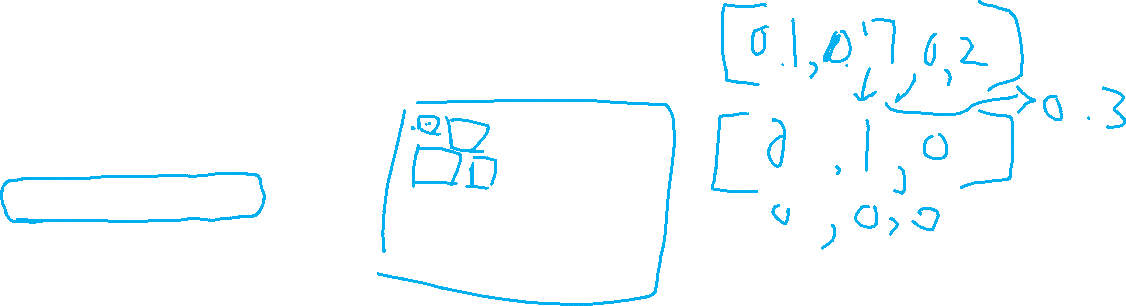 [0.1, 0.7, 0,2]
0.3
[0, 1, 0]
0, 0, 0
0
1